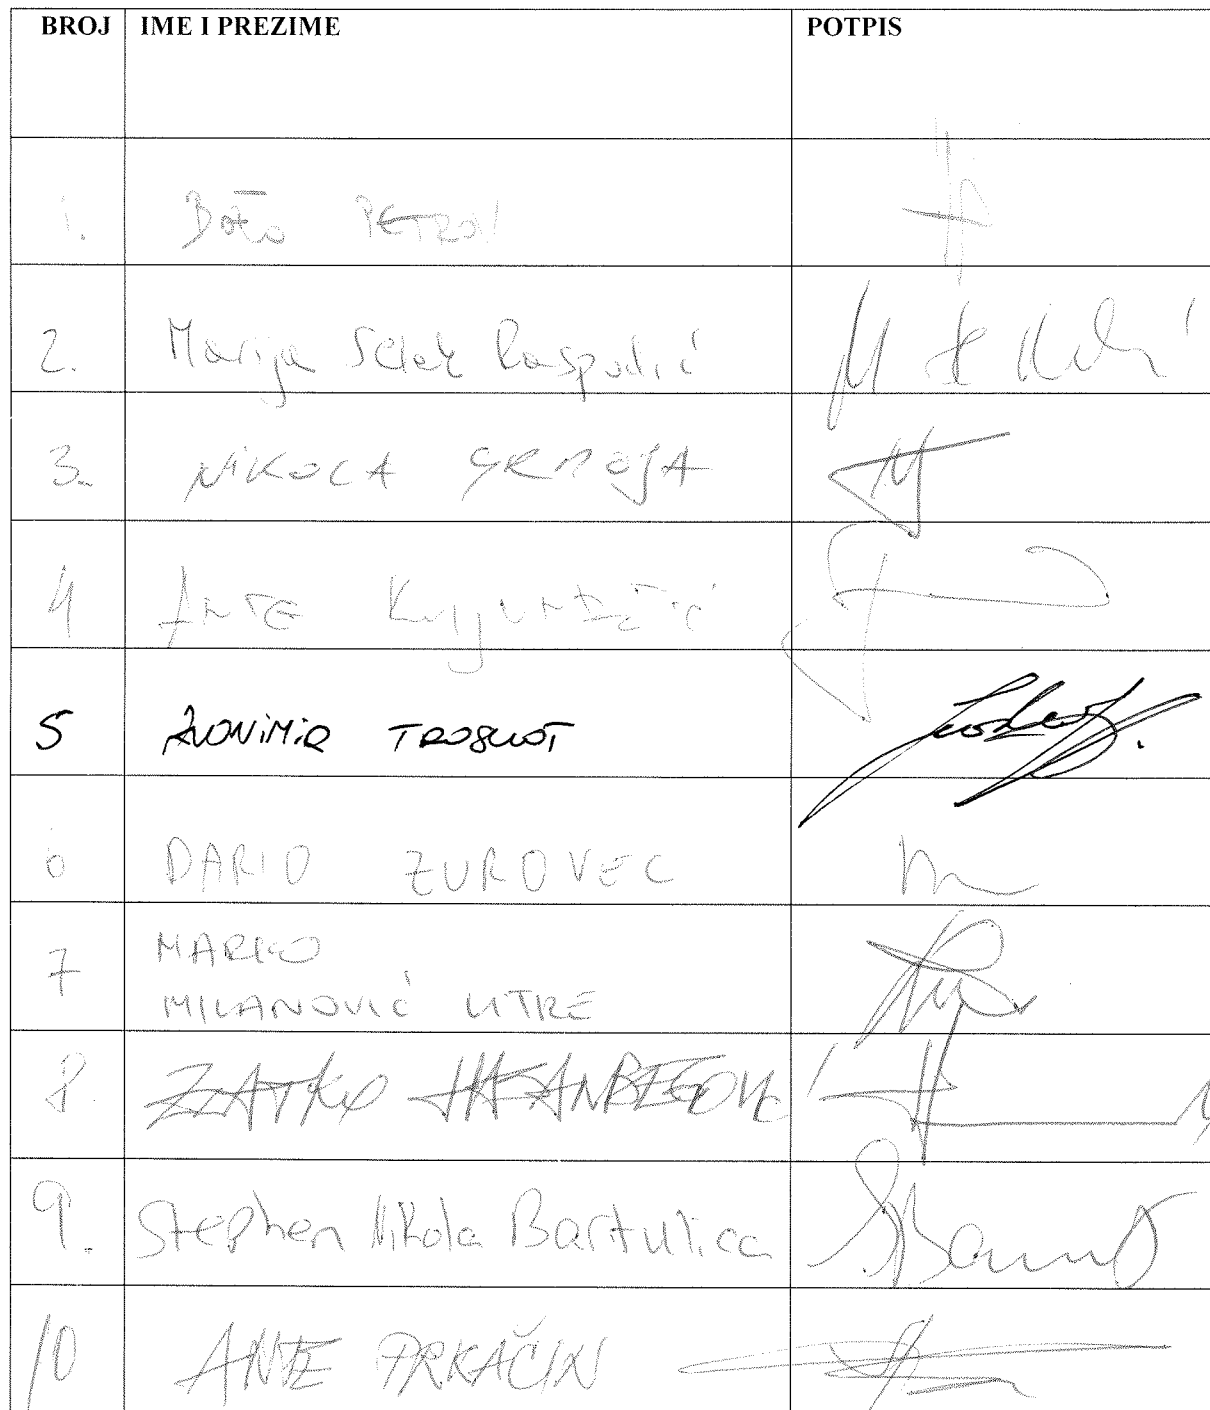 BROJ IME I PREZIME POTPIS
1. Božo PETROV
2. Marija Selak Raspudić
3. NIKOLA GRMOJA
4 ANTE KUJUNDŽIĆ
5 ZVONIMIR TROSKOT
6 DARIO ZUROVEC
7 MARKO
MILANOVIĆ LITRE
8. ZLATKO HASANBEGOVIĆ
9. Stephen Nikola Bartulica
10 ANTE PRKAČIN